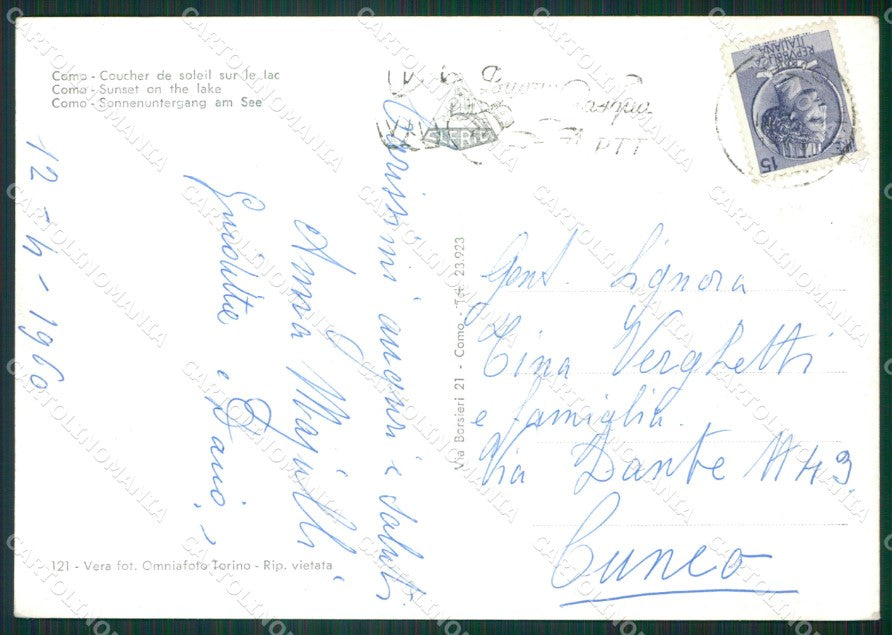 Como - Coucher de soleil sur le lac
Como - Sunset on the lake
Como - Sonnenuntergang am See
12-4-1960
Carissimi auguri e saluti
Anna Majulli
e Dario
Via Borsieri 21 - Como - Tel. 23.923
PTT
REPVBBLICA
ITALIANA
LIRE 15
Gent. Signora
Tina Verghetti
e famiglia
Via Dante N 43
Cuneo
121 - Vera fot. Omniafoto Torino - Rip. vietata
CARTOLINOMANIA